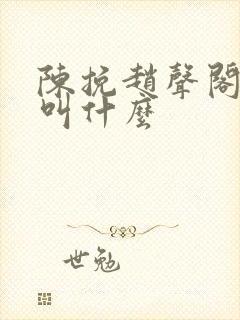 陳挽趙聲閣
叫什麼
世勉